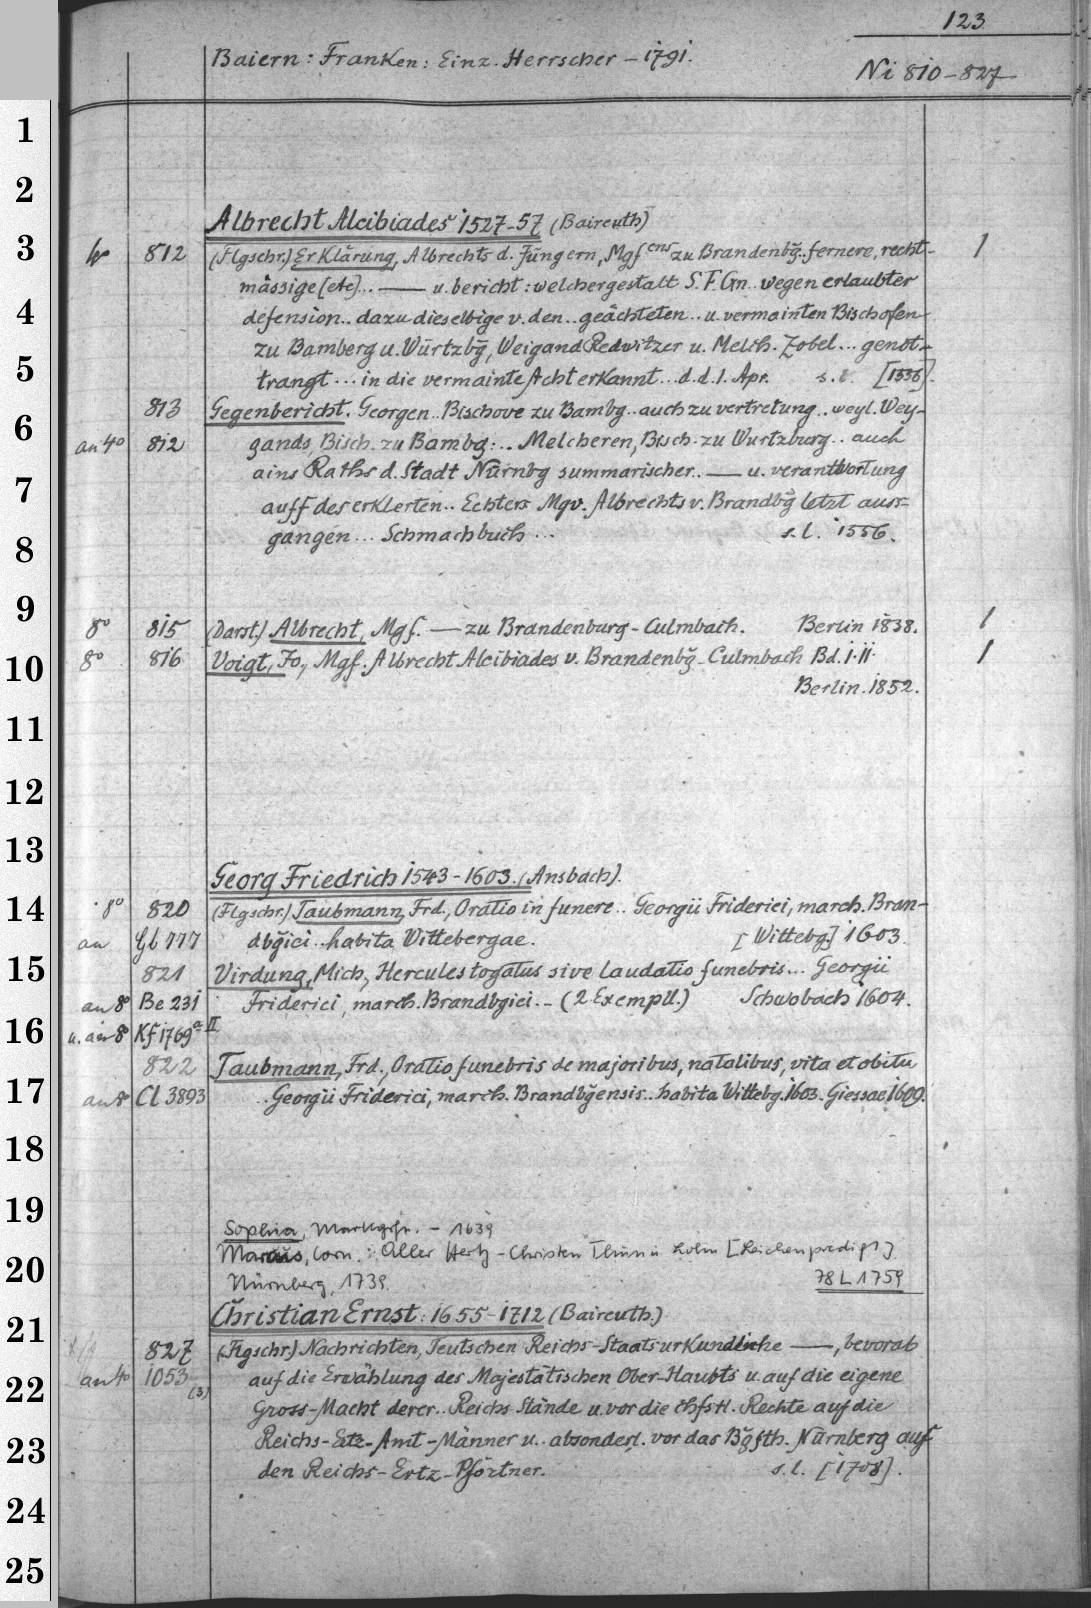 123
Baiern: Franken: Einz. Herrscher - 1791.
Ni 810-827
1
2
Albrecht Alcibiades 1527-57 (Baireuth)
3
4° 812 (Flgschr.) Erklärung, Albrechts d. Jüngern, Mgf ens zu Brandenbg̃.. fernere, recht- 1
mässige [etc]... — u. bericht: welchergestalt S. F. Gn.. wegen erlaubter
4
defension.. dazu dieselbige v. den.. geächteten.. u. vermainten Bischofen
zu Bamberg u. Würtzbg̃, Weigand Redwitzer u. Melch. Zobel... genöt-
5
trangt... in die vermainte Acht erkannt... d. d. 1. Apr. s. l. [1556].
813 Gegenbericht. Georgen.. Bischove zu Bambg.. auch zu vertretung.. weyl. Wey-
6
an 4° 812 gands, Bisch. zu Bambg:.. Melcheren, Bisch. zu Wurtzburg.. auch
ains Raths d. Stadt Nürnbg summarischer.. — u. verantwortung
7
auff des erklerten.. Echters Mgv. Albrechts v. Brandbg̃ letzt auss-
8
gangen... Schmachbuch... s. l. 1556.
9
8° 815 (Darst.) Albrecht, Mgf. — zu Brandenburg-Culmbach. Berlin 1838. 1
10
8° 816 Voigt, Jo., Mgf. Albrecht Alcibiades v. Brandenbg̃-Culmbach Bd. I. II. 1
Berlin. 1852.
11
12
13
Georg Friedrich 1543-1603. (Ansbach).
14
8° 820 (Flgschr.) Taubmann, Frd., Oratio in funere.. Georgii Friderici, march. Bran-
an Gb 777 dbg̃ici.. habita Wittebergae. [Wittebg.] 1603.
15
821 Virdung, Mich., Hercules togatus sive laudatio funebris... Georgii
an 8° Be 231 Friderici, march. Brandbgici.. (2 Exempll.) Schwobach 1604.
16
u. an 8° Kf 1769a II
822 Taubmann, Frd., Oratio funebris de majoribus, natalibus, vita et obitu
17
an 8° Cl 3893 .. Georgii Friderici, march. Brandbg̃ensis.. habita Wittebg. 1603. Giessae 1609.
18
19
Sophia, Markgrfn. - 1639
Marcus, Corn.: Aller Hertz-Christen Thun u [Leichenpredigt]
20
Nürnberg, 1739. 78 L 1759
21
Christian Ernst: 1655-1712 (Baireuth.)
827 (Flgschr.) Nachrichten, Teutschen Reichs-Staats-urkundliche —, bevorab
22
an 4° 1053 (3) auf die Erwählung des Majestätischen Ober-Haubts u. auf die eigene
Gross-Macht derer.. Reichs-Stände u. vor die chfstl. Rechte auf die
23
Reichs-Ertz-Amt-Männer u.. absonderl. vor das Bg̃fth. Nürnberg auf
den Reichs-Ertz-Pförtner. s. l. [1708].
24
25